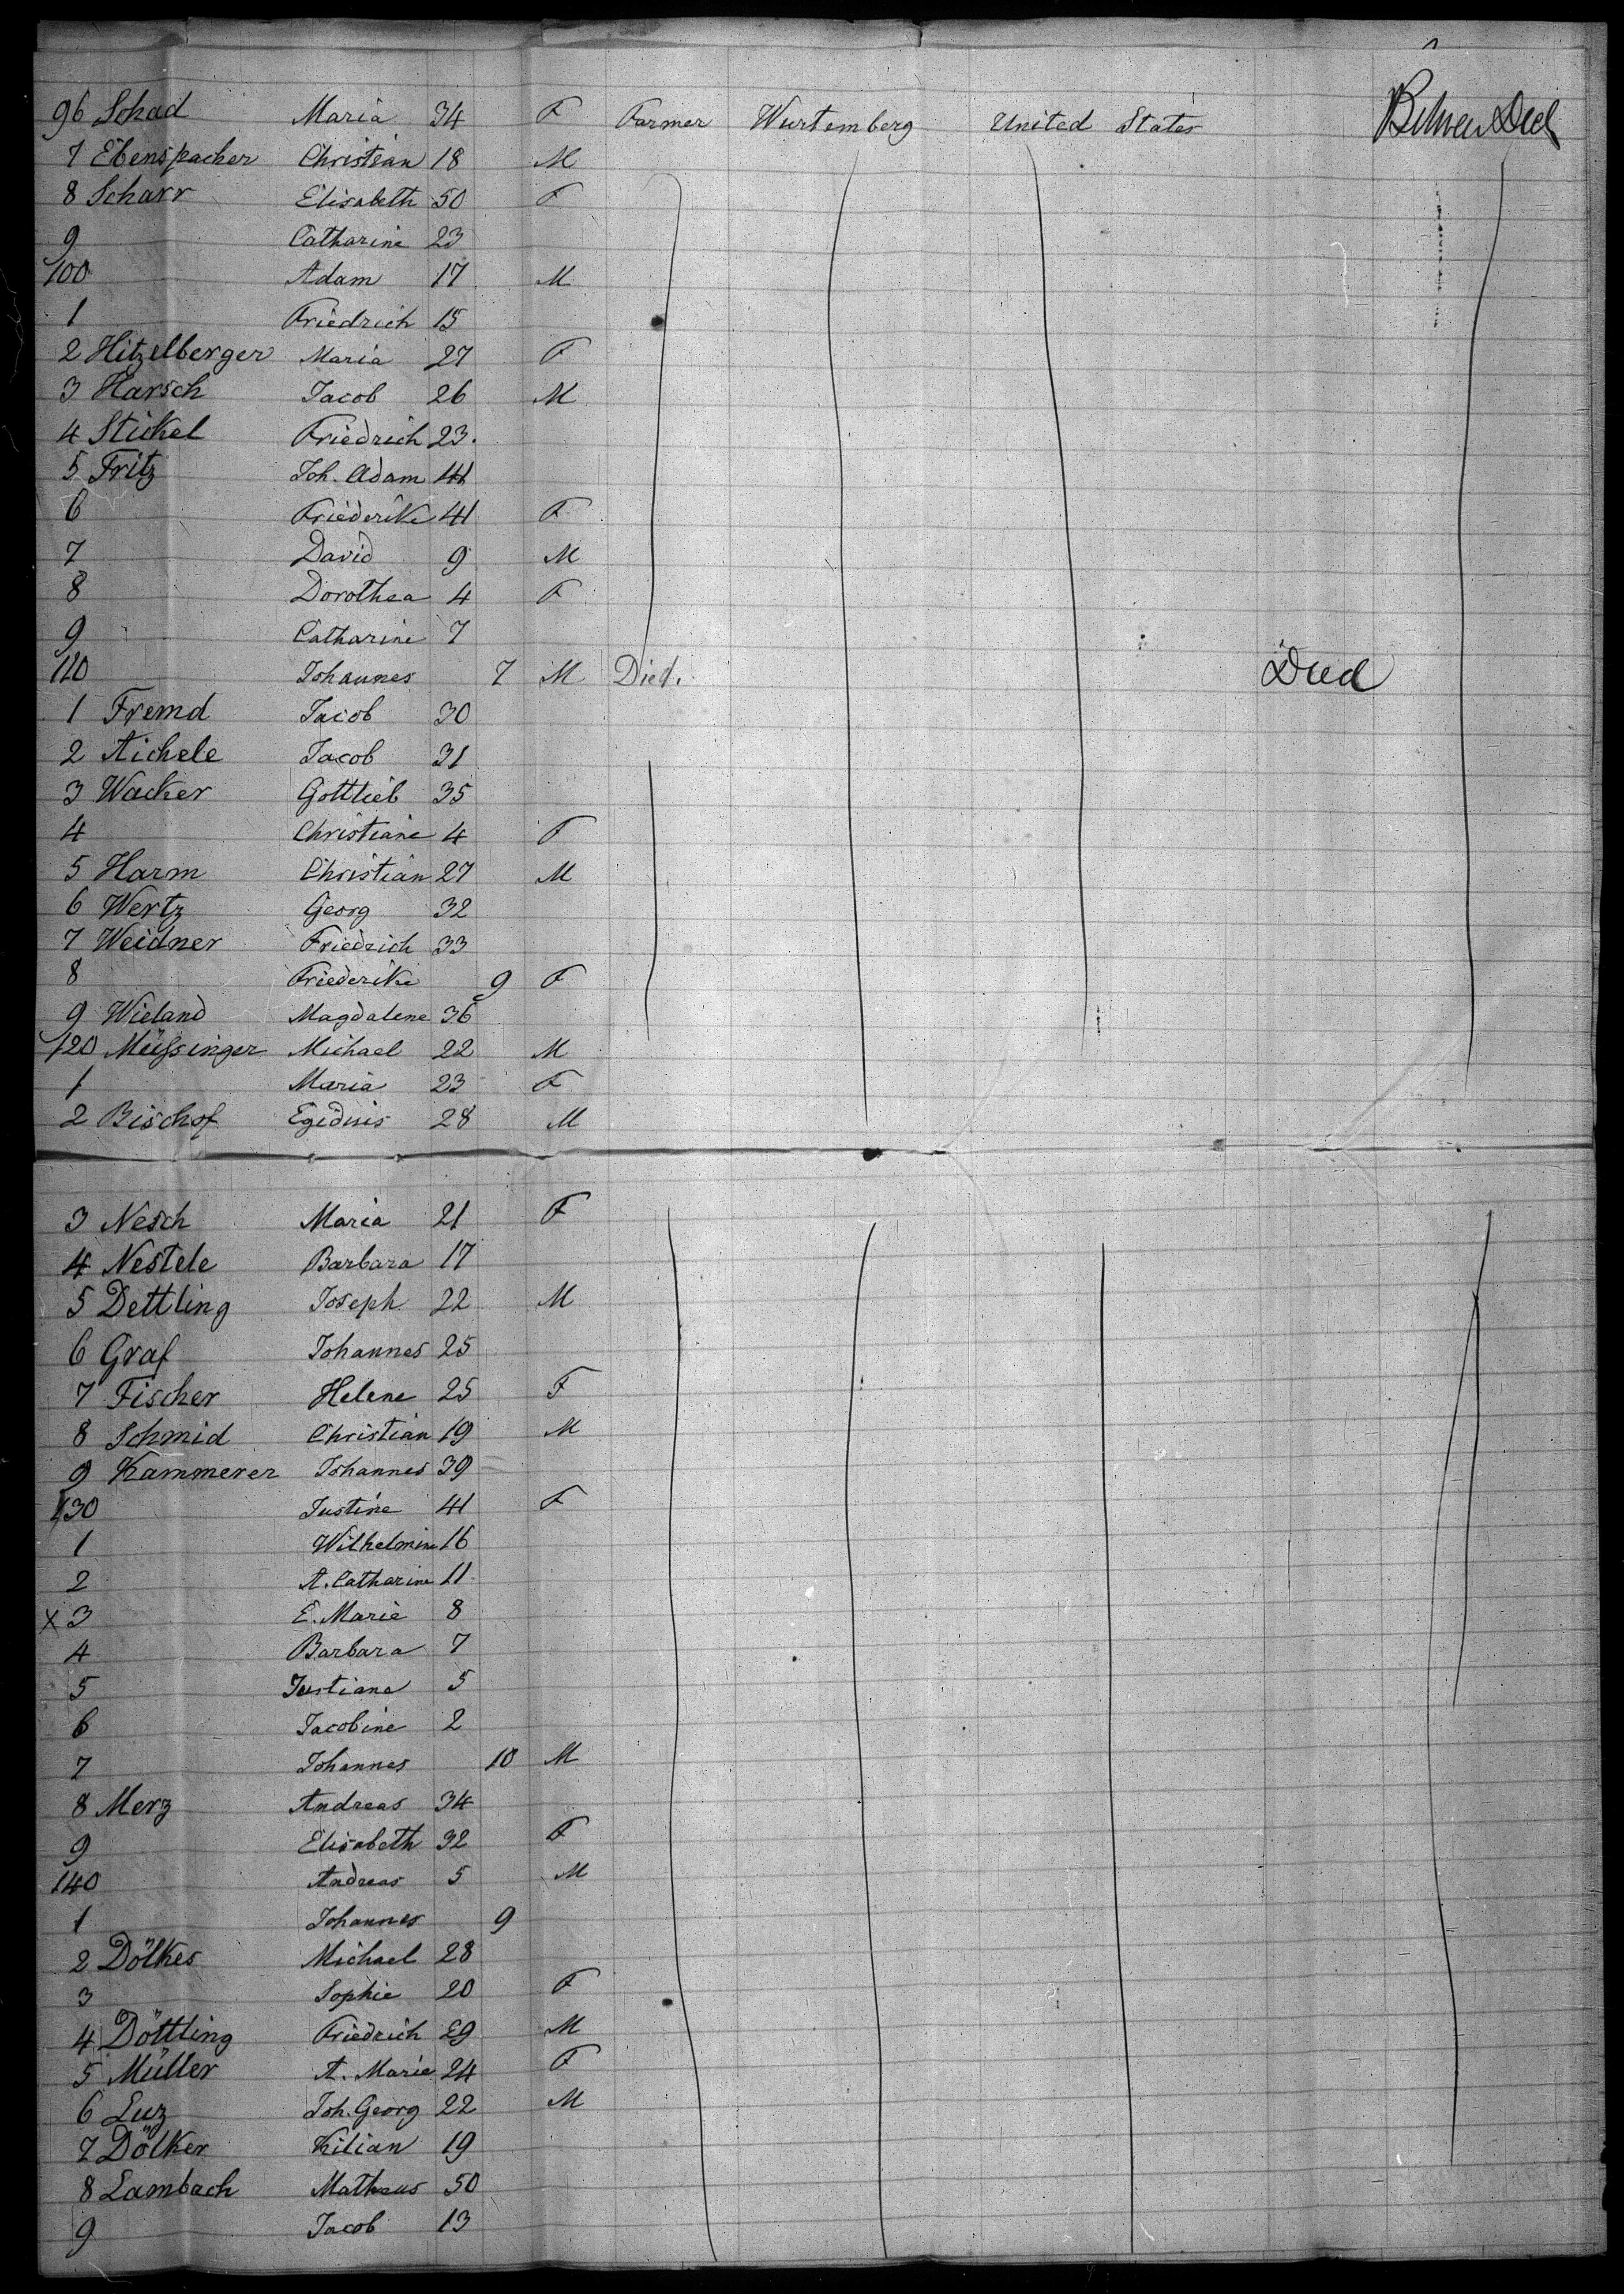 96 Schad Maria 34 F Farmer Wurtemberg United States Between Deck
7 Ebenspacher Christian 18 M
8 Scharr Elisabeth 50 F
9 Catharine 23
100 Adam 17 M
1 Friedrich 15
2 Hitzelberger Maria 27 F
3 Harsch Jacob 26 M
4 Stickel Friedrich 23.
5 Fritz Joh. Adam 41
6 Friederike 41 F
7 David 9 M
8 Dorothea 4 F
9 Catharine 7
110 Johannes 7 M Died. Died
1 Fremd Jacob 30
2 Aichele Jacob 31
3 Wacker Gottlieb 35
4 Christiane 4 F
5 Harm Christian 27 M
6 Wertz Georg 32
7 Weidner Friedrich 33
8 Friederike 9 F
9 Wieland Magdalene 36
120 Müssinger Michael 22 M
1 Maria 23 F
2 Bischof Egidius 28 M
3 Nesch Maria 21 F
4 Nestele Barbara 17
5 Dettling Joseph 22 M
6 Graf Johannes 25
7 Fischer Helene 25 F
8 Schmid Christian 19 M
9 Kammerer Johannes 39
130 Justine 41 F
1 Wilhelmine 16
2 A. Catharine 11
x 3 E. Marie 8
4 Barbara 7
5 Justiana 5
6 Jacobine 2
7 Johannes 10 M
8 Merz Andreas 34
9 Elisabeth 32 F
140 Andreas 5 M
1 Johannes 9
2 Dölkes Michael 28
3 Sophie 20 F
4 Döttling Friedrich 29 M
5 Müller A. Marie 24 F
6 Luz Joh. Georg 22 M
7 Dölker Kilian 19
8 Lambach Matheus 50
9 Jacob 13